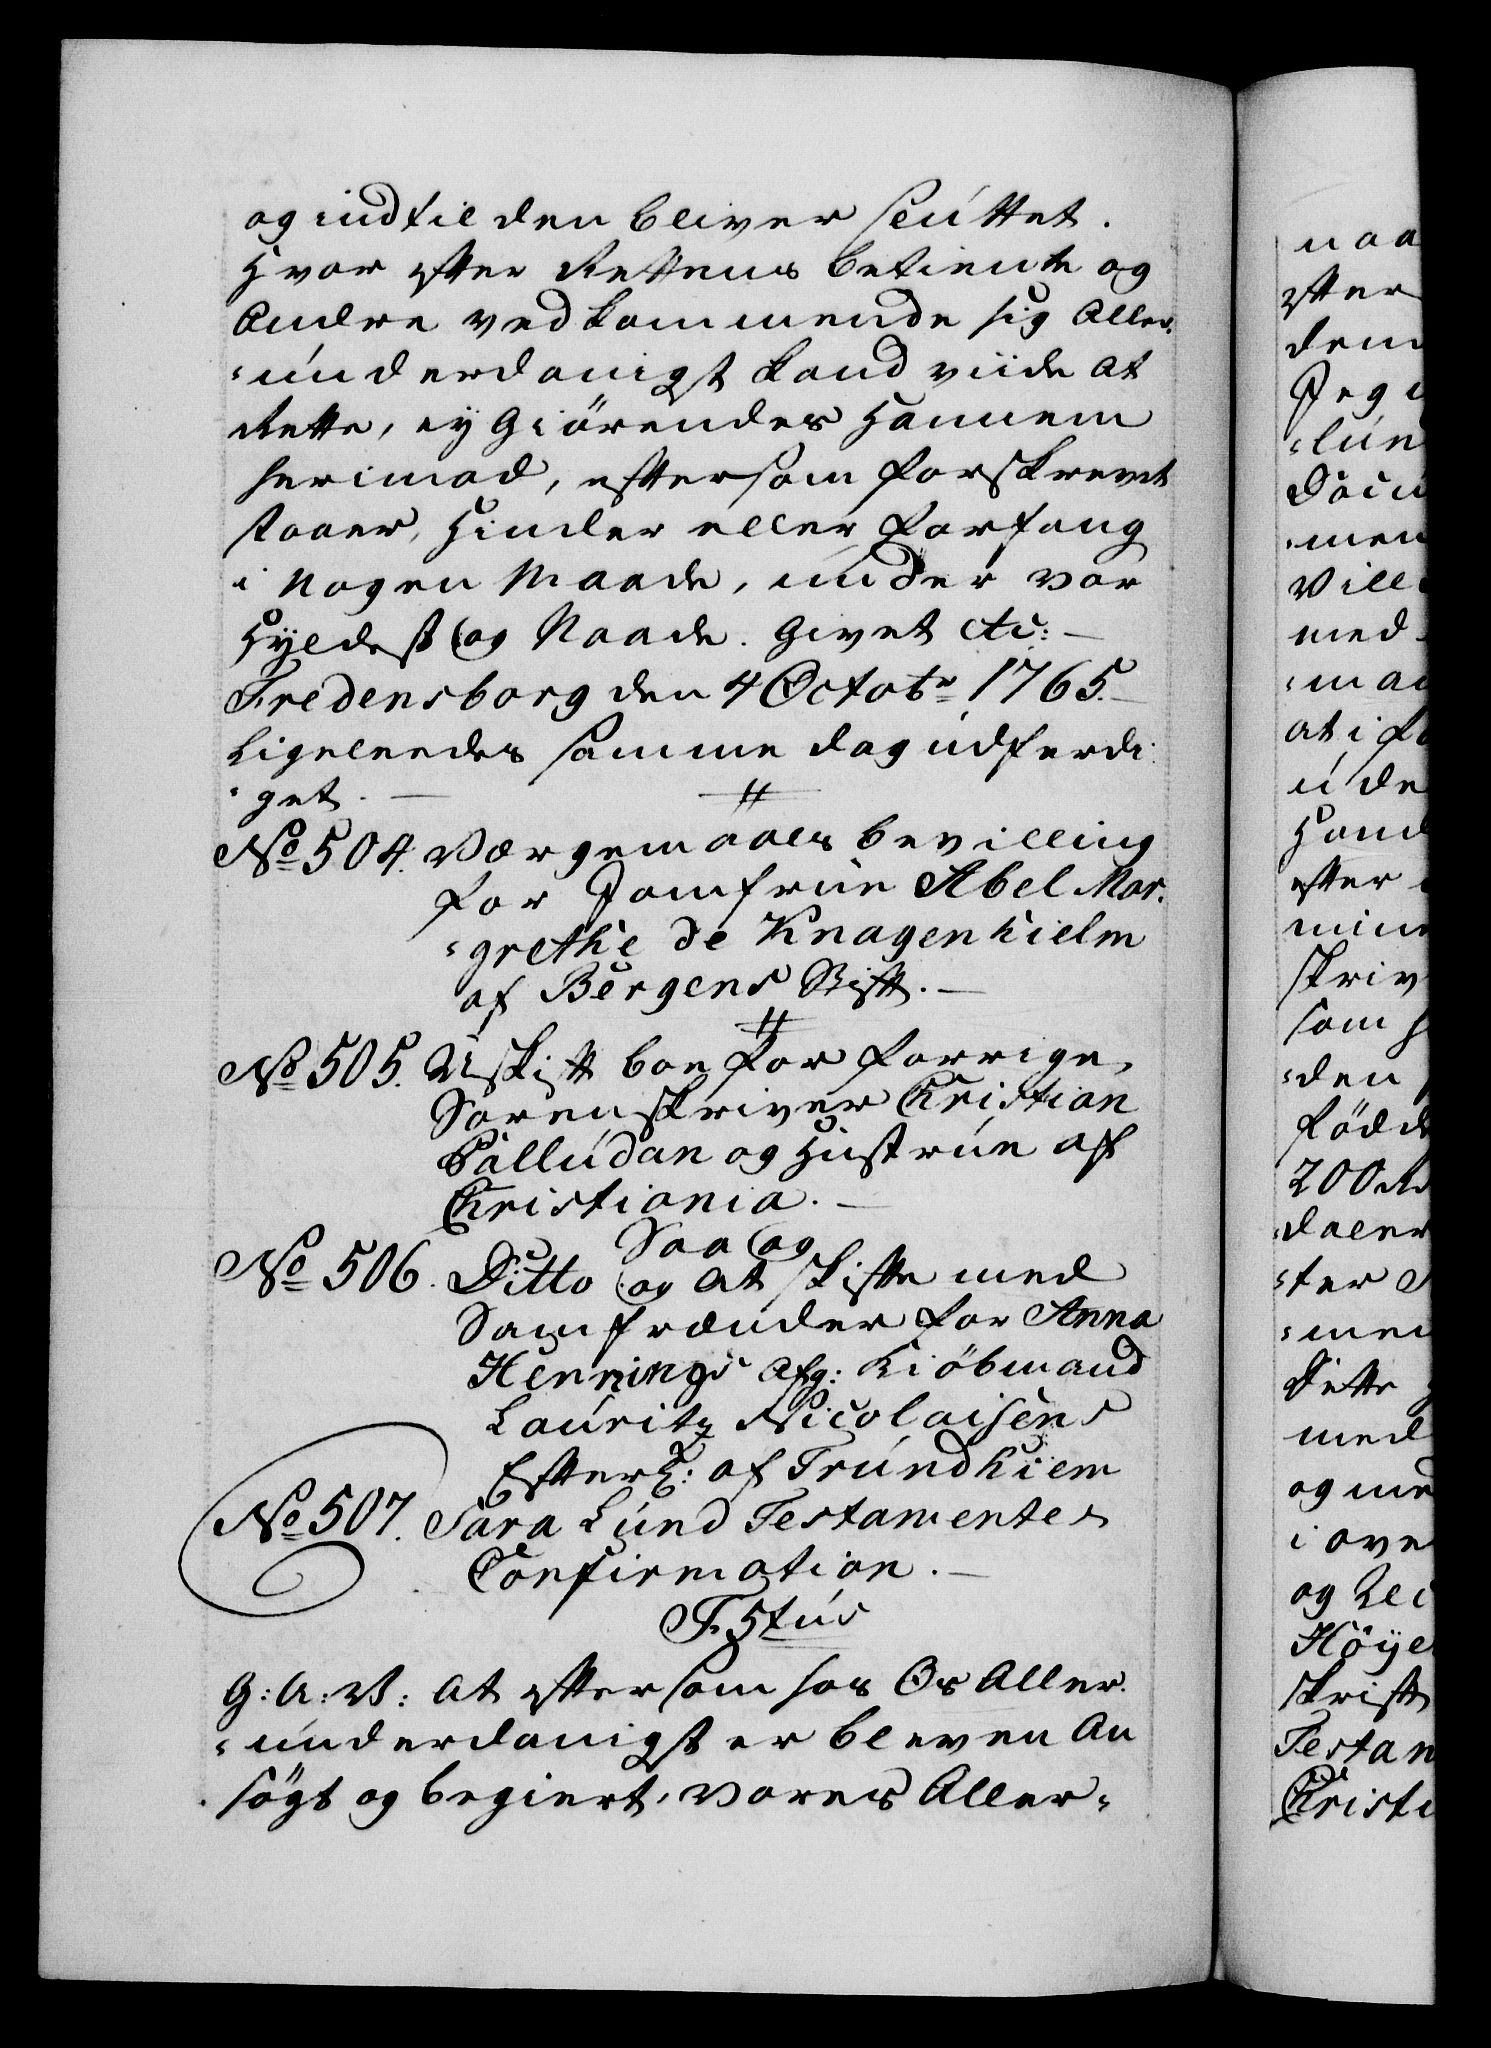 og indtil den bliver sluttet.
Hvor efter Rettens betiente og
Andre vedkommende sig Aller-
-underdanigst kand viide at
Rette, ey Giörendes Hannem
herimod, eftersom forskrevet
staaer, Hinder eller forfang
i Nogen Maade, under vor
Hyldest og Naade. Givet etc: –
Fredensborg den 4 Octobr 1765. –
Ligeleedes samme dag udferdi-
-get. –
No 504. Værgemaals bevilling
for Jomfrue Abel Mar-
-grethe de Knagenhielm
af Bergens Stift. –
No 505. Uskift boe for forrige
Sorenskriver Christian
Palludan og Hustrue af
Christiania. –
Saa og
No 506. Ditto og at skifte med
Samfrænder for Anna
Hennings afg: Kiöbmand
Lauritz Nicolaisens
Efterl: af Trundhiem
No 507. Sara Lund Testamentes
Confirmation. –
F. 5tus
G: A: V: at eftersom hos Os Aller-
-underdanigst er bleven An
søgt og begiert, vores Aller-
naa
efter
den
Jeg
-lun
Docu
-men
Vill
med
-ma
at i fo
u de
Haand
efter
min
skriv
som
-den
födde
200 R
daler
-ter
-men
Dette
med
og me
i ove
og
Höye
skrift
Testam
Christi